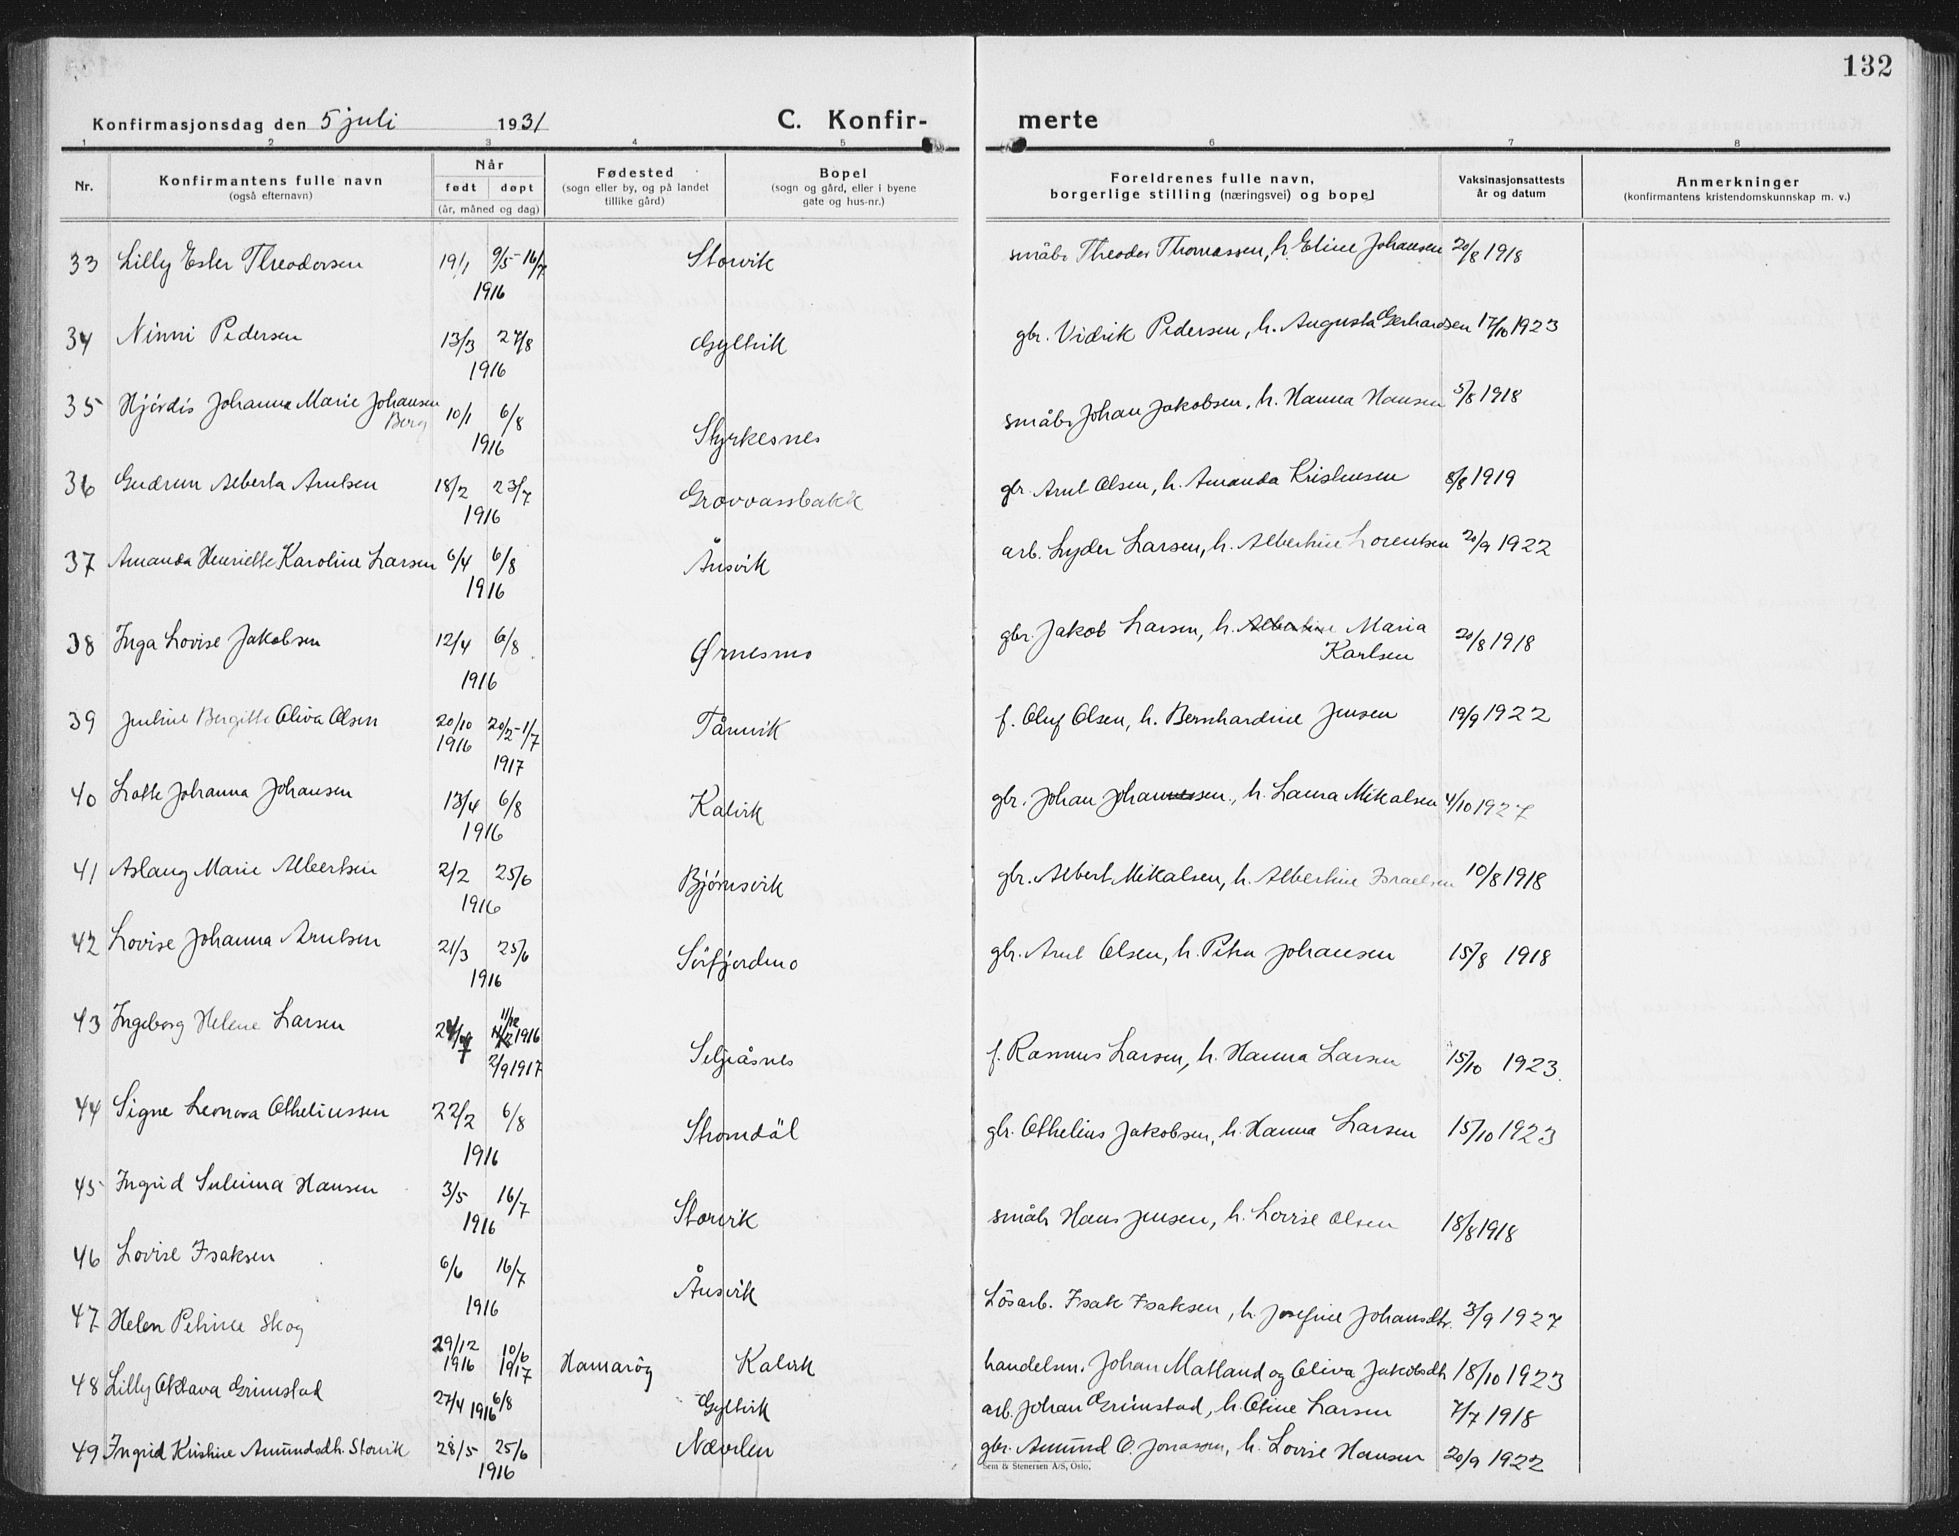 132
Konfirmasjonsdag den 5 juli 1931 C. Konfir- merte
1 2 3 4 5 6 7 8
Nr. Konfirmantens fulle navn (også efternavn) Når født døpt (år, måned og dag) Fødested (sogn eller by, og på landet tillike gård) Bopel (sogn og gård, eller i byene gate og hus-nr.) Foreldrenes fulle navn, borgerlige stilling (næringsvei) og bopel Vaksinasjonsattests år og datum Anmerkninger (konfirmantens kristendomskunnskap m. v.)
33 Lilly Ester Theodorsen 19/1 9/5-16/7 1916 Storvik småbr Theodor Thomassen, h. Eline Johansen 20/8 1918
34 Ninni Pedersen 13/3 27/8 1916 Gyltvik gbr. Vidrik Pedersen, h. Augusta Gerhardsen 17/10 1923
35 Hjørdis Johanna Marie Johansen Berg 10/1 6/8 1916 Styrkesnes småbr Johan Jakobsen, h. Hanna Hansen 5/8 1918
36 Gudrun Alberta Arntsen 18/2 23/7 1916 Grovvassbakk gbr Arnt Olsen, h. Amanda Kristensen 8/8 1919
37 Amanda Henriette Karoline Larsen 6/4 6/8 1916 Ånsvik arb. Lyder Larsen, h. Albertine Lorentsen 20/9 1922
38 Inga Lovise Jakobsen 12/4 6/8 1916 Ørnesmo gbr. Jakob Larsen, h. Albertine Maria Karlsen 20/8 1918
39 Jentine Bergitte Oliva Olsen 20/10 1916 20/2-1/7 1917 Tårnvik f. Oluf Olsen, h. Bernhardine Jensen 19/9 1922
40 Lotte Johanna Johansen 13/4 6/8 1916 Kalvik gbr. Johan Johannessen, h. Laura Mikalsen 4/10 1927
41 Aslaug Marie Albertsen 2/2 25/6 1916 Bjørnsvik gbr. Albert Mikalsen, h. Albertine Israelsen 10/8 1918
42 Lovise Johanna Arntsen 21/3 25/6 1916 Sörfjordmo gbr. Arnt Olsen, h. Petra Johansen 15/8 1918
43 Ingeborg Helene Larsen 24/7 11/12 1916 2/9 1917 Seljeåsnes f. Rasmus Larsen, h. Hanna Larsen 15/10 1923.
44 Signe Leonora Otheliussen 22/2 6/8 1916 Stromdål gbr. Othelius Jakobsen, h. Hanna Larsen 15/10 1923
45 Ingrid Selima Hansen 3/5 16/7 1916 Storvik småbr Hans Jensen, h. Lovise Olsen 18/8 1918
46 Lovise Isaksen 6/6 16/7 1916 Ånsvik Lösarb. Isak Isaksen, h. Josefine Johansdtr. 3/9 1927
47 Helen Petrine Skog 29/12 1916 10/6 1917 Hamarøy Kalvik handelsm. Johan Matland og Oliva Jakobsdtr 18/10 1923
48 Lilly Oktava Grimstad 27/4 1916 6/8 Gyltvik arb. Johan Grimstad, h. Otine Larsen 7/7 1918
49 Ingrid Kristine Amundsdtr. Storvik 28/5 25/6 1916 Nævrlen gbr. Amund O. Jonassen, h. Lovise Hansen 20/9 1922
Sem & Stenersen A/S, Oslo.